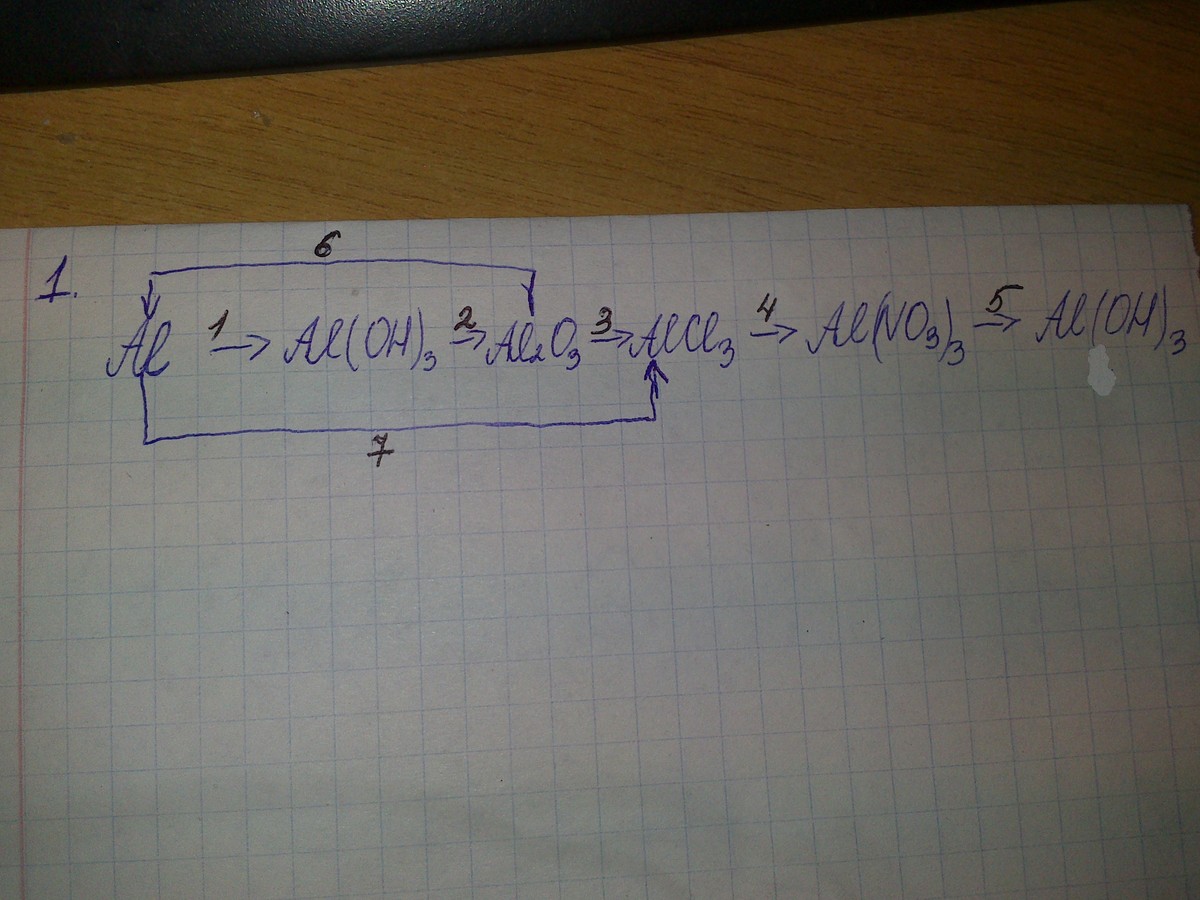 6
1. Al 1→ Al(OH)₃ 2→ Al₂O₃ 3→ AlCl₃ 4→ Al(NO₃)₃ 5→ Al(OH)₃
7